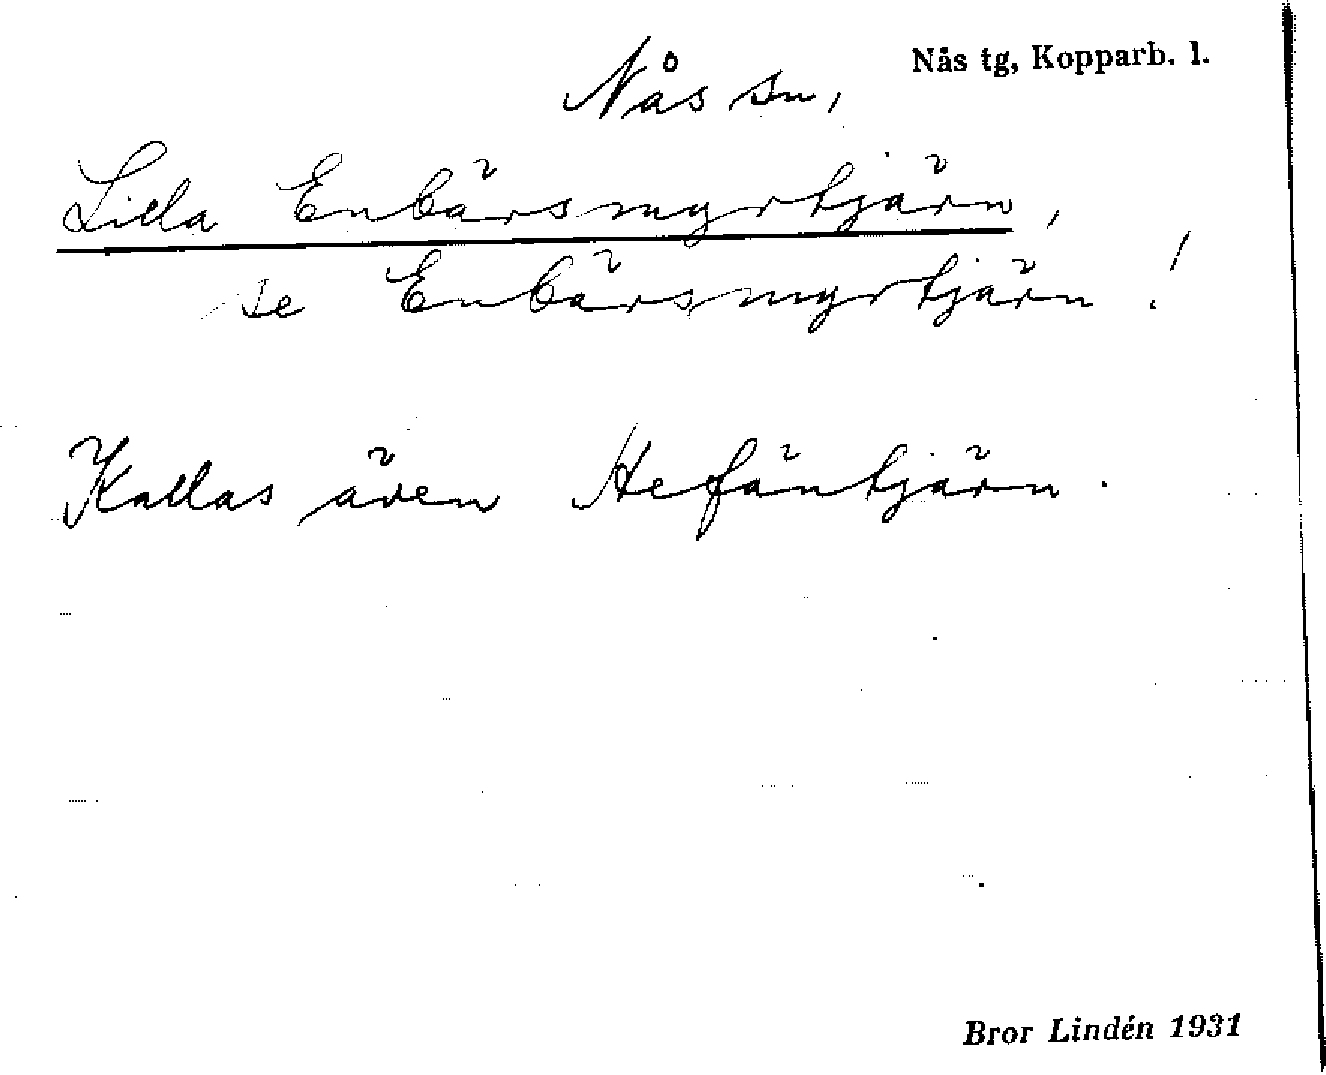 Nås tg, Kopparb. l.
Nås sn,
Lilla Enbärsmyrtjärn,
se Enbärsmyrtjärn!
Kallas även Hefäntjärn.
Bror Lindén 1931